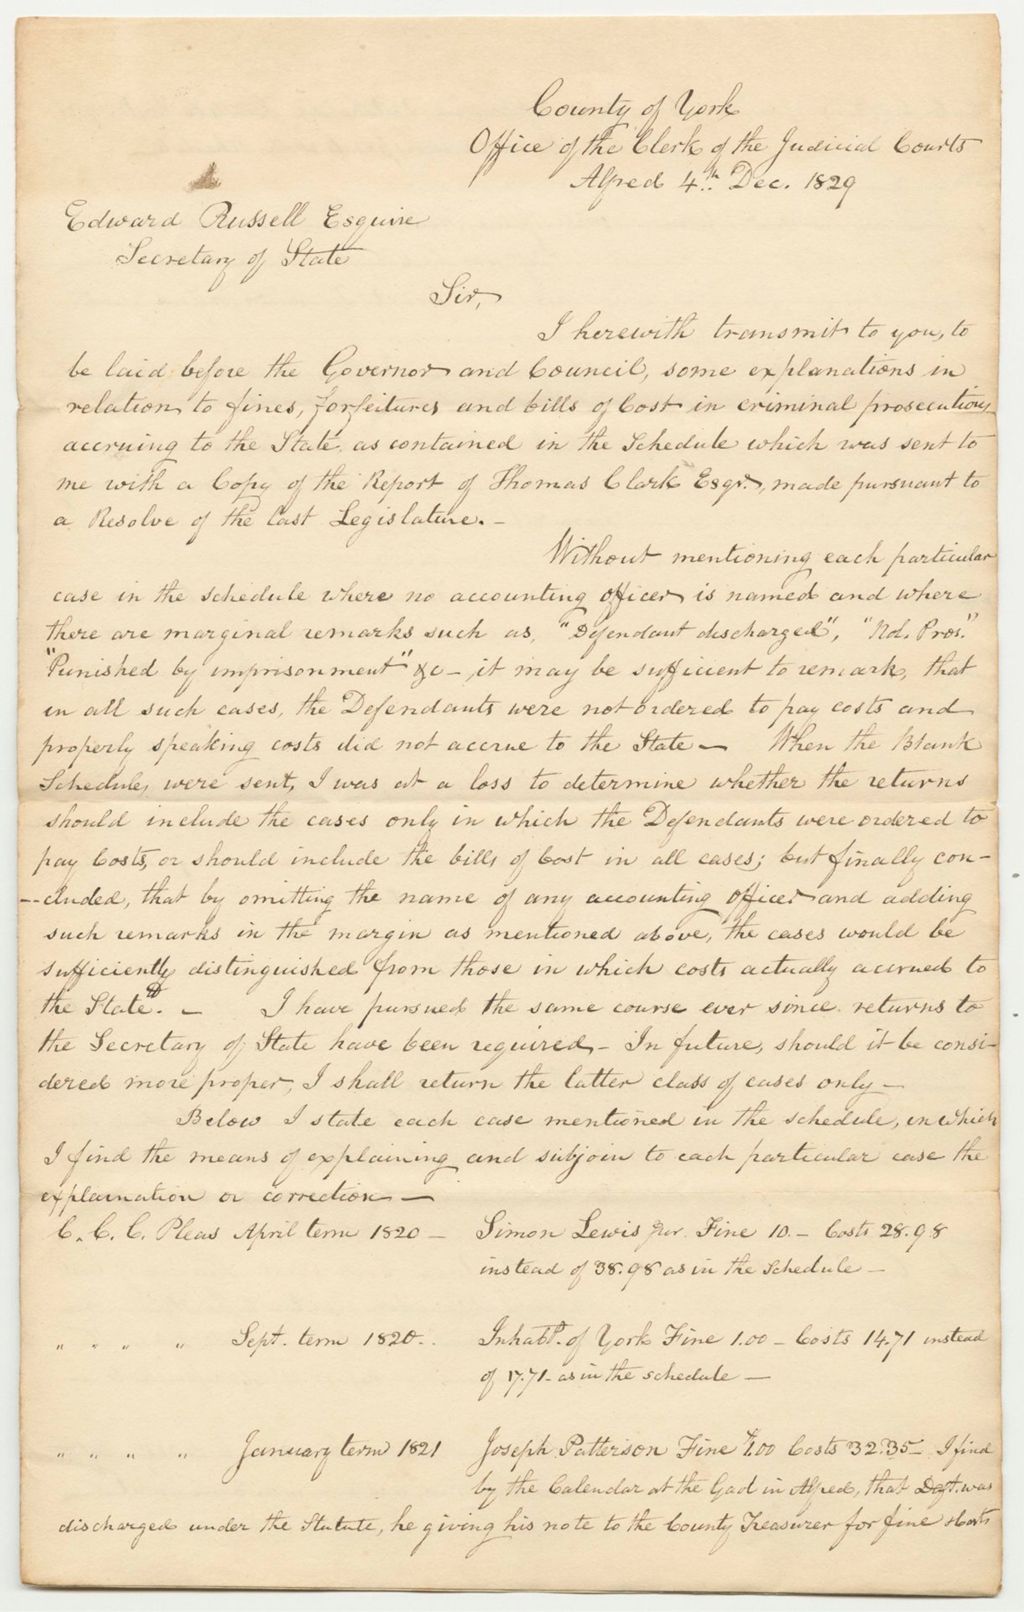 County of York
Office of the Clerk of the Judicial Courts
Alfred 4th Dec. 1829
Edward Russell Esquire
Secretary of State
Sir,
I herewith transmit to you, to
be laid before the Governor and Council, some explanations in
relation to fines, forfeitures and bills of Cost in criminal prosecutions
accruing to the State, as contained in the Schedule which was sent to
me with a Copy of the Report of Thomas Clark Esqr., made pursuant to
a Resolve of the last Legislature. –
Without mentioning each particular
case in the schedule where no accounting officer is named and where
there are marginal remarks such as, "Defendant discharged", "Nol. Pros."
"Punished by imprisonment" &c – it may be sufficient to remark, that
in all such cases, the Defendants were not ordered to pay costs and
properly speaking costs did not accrue to the State – When the Blank
Schedules were sent, I was at a loss to determine whether the returns
should include the cases only in which the Defendants were ordered to
pay Costs, or should include the bills of Cost in all cases; but finally con-
-cluded, that by omitting the name of any accounting officer and adding
such remarks in the margin as mentioned above, the cases would be
sufficiently distinguished from those in which costs actually accrued to
the State. – I have pursued the same course ever since returns to
the Secretary of State have been required – In future, should it be consi-
dered more proper, I shall return the latter class of cases only –
Below I state each case mentioned in the schedule, in which
I find the means of explaining and subjoin to each particular case the
explaination or correction –
C. C. C. Pleas April term 1820 – Simon Lewis for Fine 10. – Costs 28.98
instead of 38.98 as in the schedule –
" " " " Sept. term 1820 – Inhabts. of York Fine 1.00 – Costs 14.71 instead
of 17.71 – as in the schedule –
" " " " January term 1821 Joseph Patterson Fine 1.00 Costs 32.35 – I find
by the Calendar at the Gaol in Alfred, that Deft. was
discharged under the Statute, he giving his note to the County Treasurer for fine & Costs